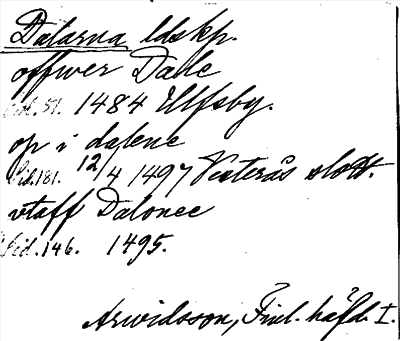 Dalarna ldskp.
offwer Dale
Sid. 51. 1484 Ulfsby.
op i dalene
Sid. 181. 12/4 1497 Vesterås slott.
vtaff Dalonee
Sid. 146. 1495.
Arwidsson, Finl. häfd. I.